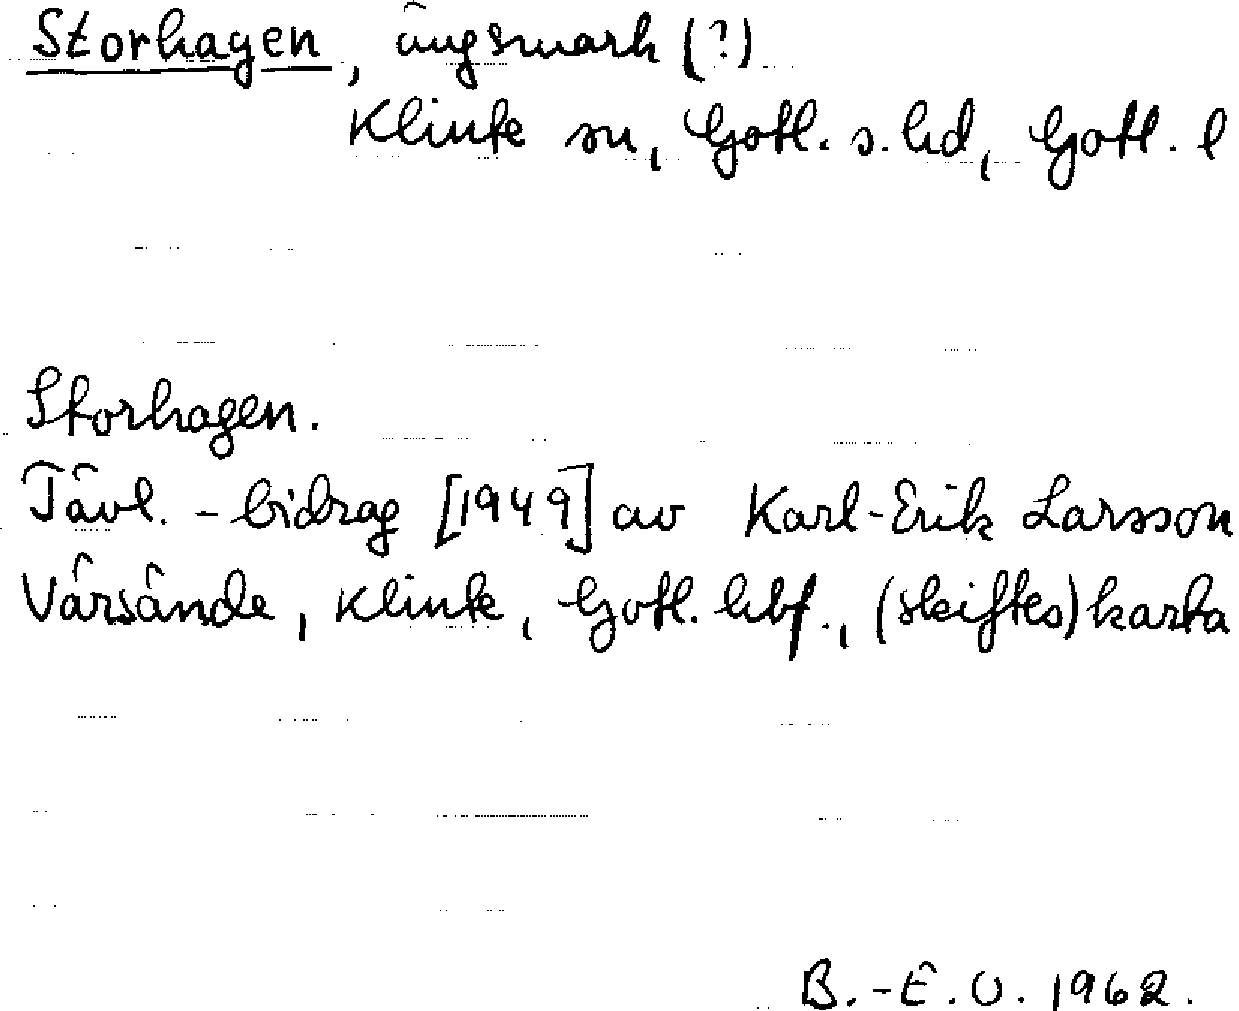 Storhagen, ängsmark (?)
Klinte sn, Gotl. s. hd, Gotl. l
Storhagen.
Tävl.-bidrag [1949] av Karl-Erik Larsson
Värsände, Klinte, Gotl. hbf., (skiftes)karta
B.-E.O. 1962.